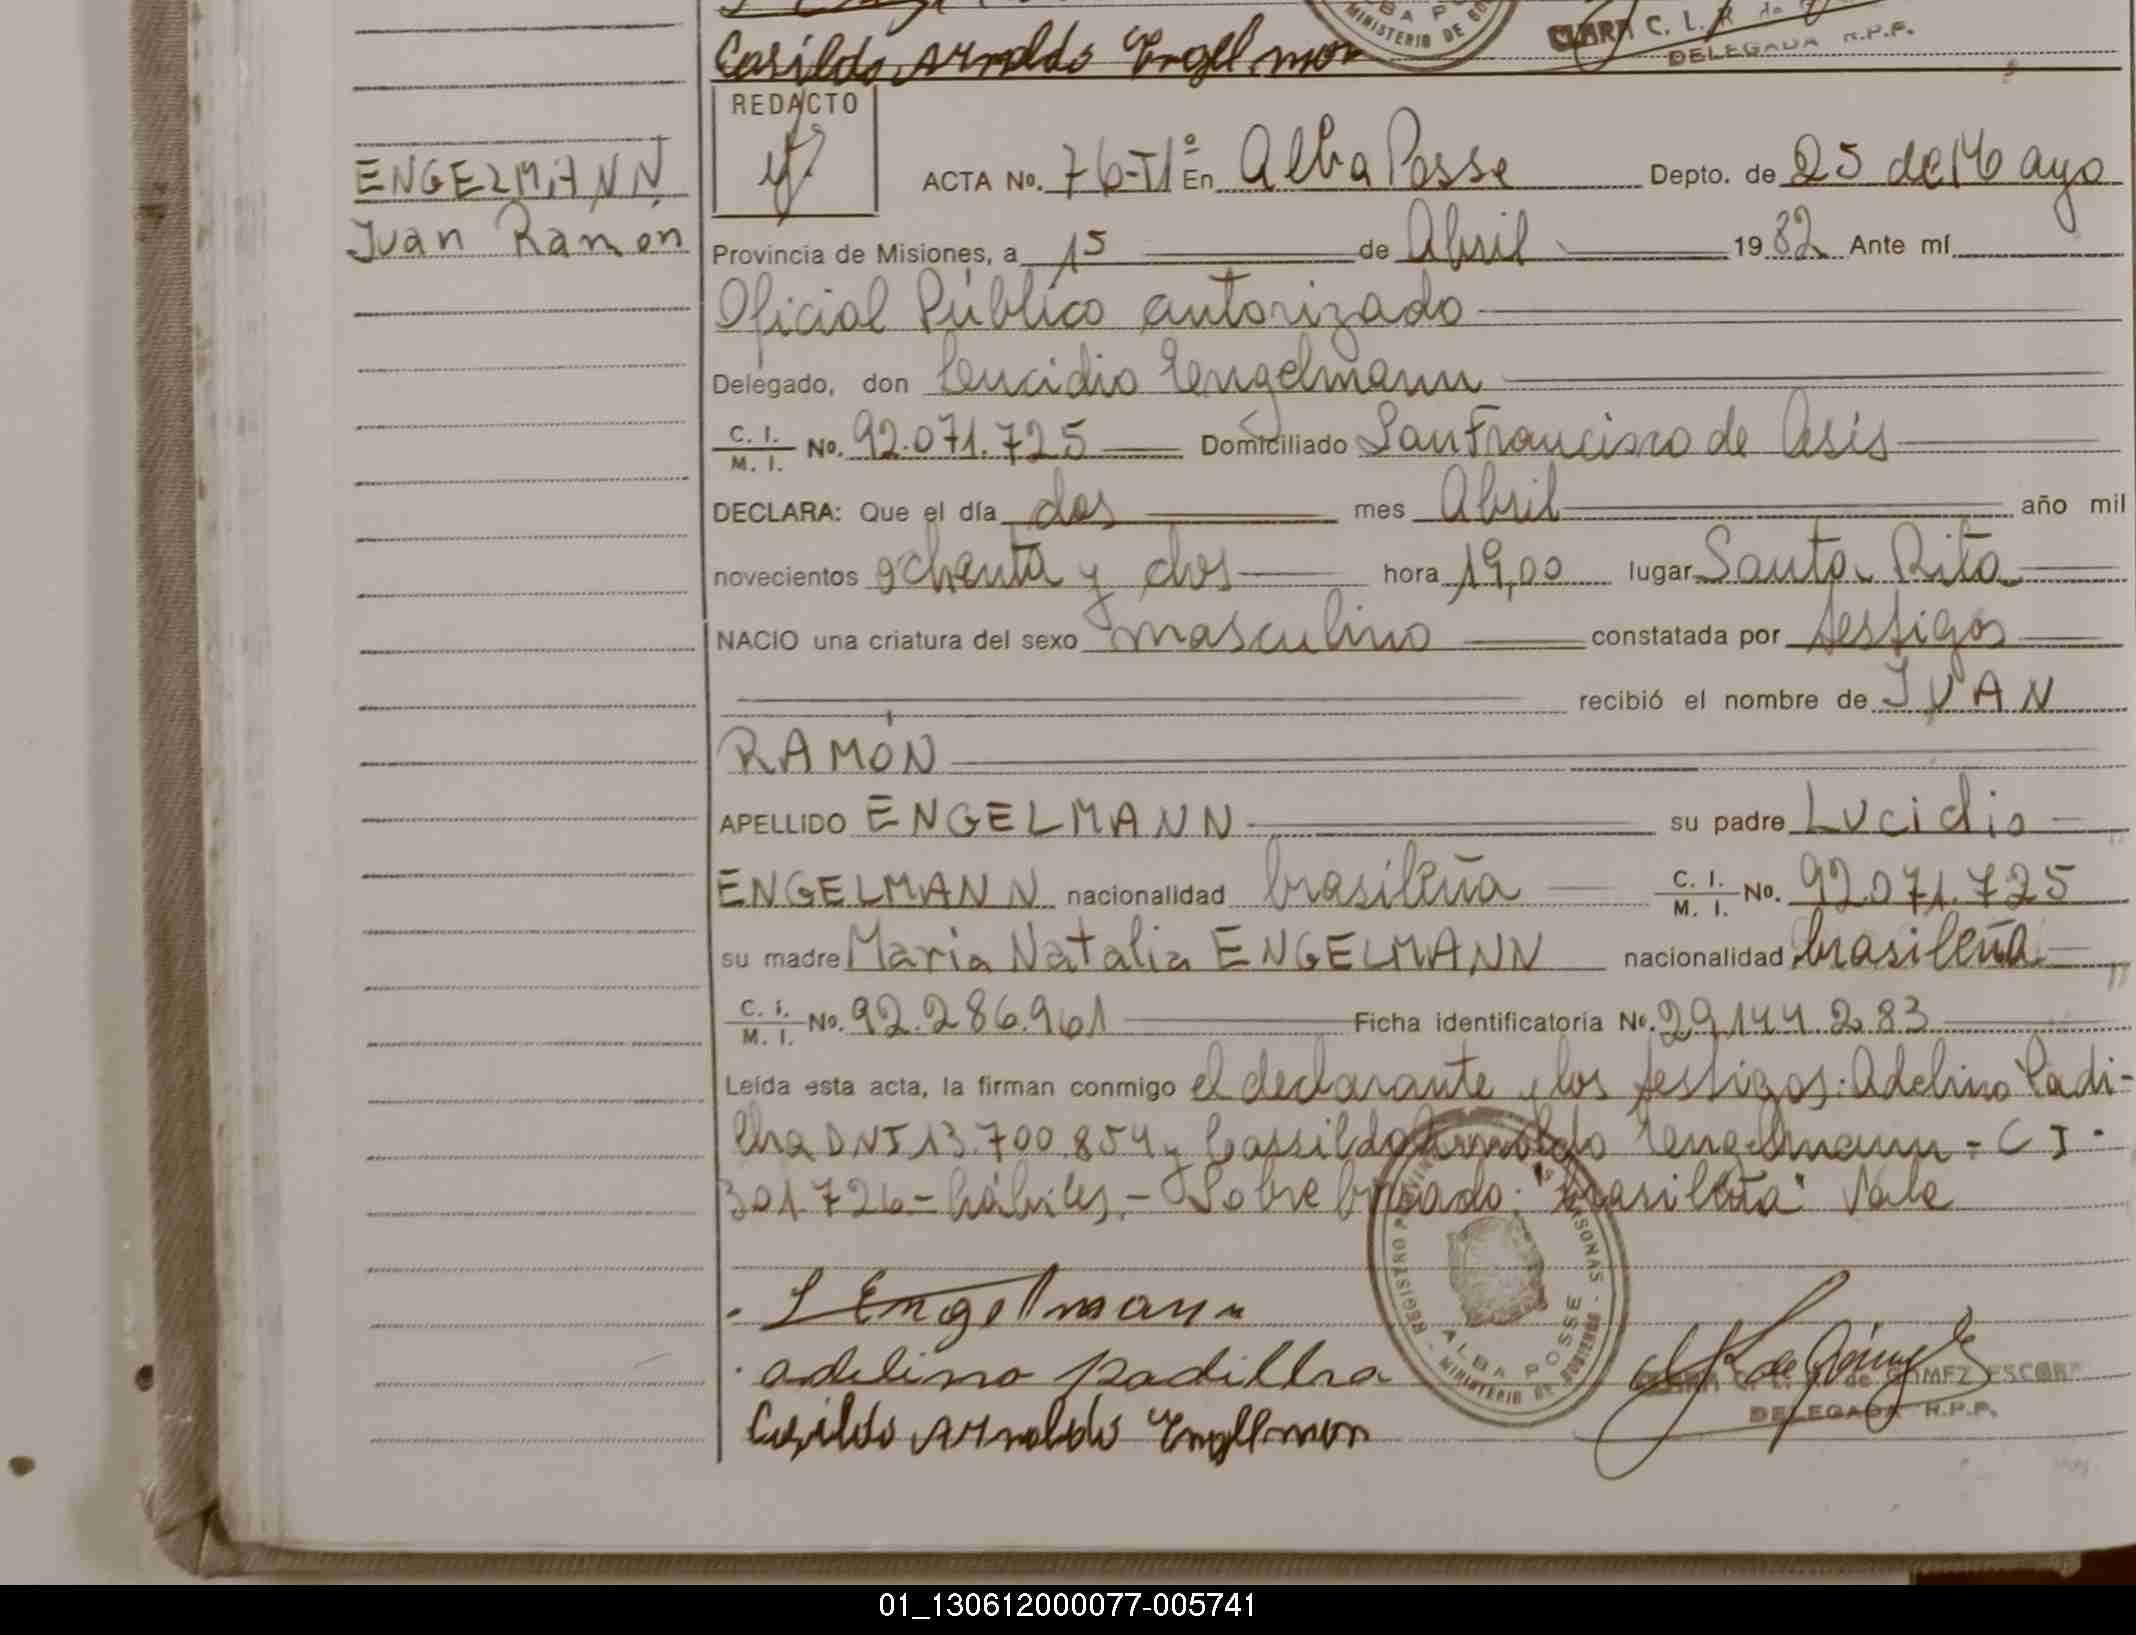 Casildo Arnoldo Engelmon
MINISTERIO DE
CLARA C. L. R. de
DELEGADA R.P.P.
REDACTO
ENGELMANN
Juan Ramon
ACTA No. 76-T1º En Alba Posse Depto. de 25 de Mayo
Provincia de Misiones, a 15 de Abril 1982 Ante mí
Oficial Público autorizado
Delegado, don Lucidio Engelmann
C. I. / M. I. No. 92.071.725 Domiciliado San Francisco de Asis
DECLARA: Que el día dos mes Abril año mil
novecientos ochenta y dos hora 19,00 lugar Santa Rita
NACIO una criatura del sexo masculino constatada por testigos
recibió el nombre de JUAN
RAMÓN
APELLIDO ENGELMANN su padre Lucidio
ENGELMANN nacionalidad brasileña C. I. / M. I. No. 92.071.725
su madre Maria Natalia ENGELMANN nacionalidad brasileña
C. I. / M. I. No. 92.286.961 Ficha identificatoria No. 29.144.283
Leída esta acta, la firman conmigo el declarante y los testigos: Adelino Padi-
lha DNI 13.700.854 y Cassildo Arnoldo Engelmann - C I -
301726 - hábiles. - Sobre borrado: "brasileña" Vale
L Engelmann
adelino padilha
Casildo Arnoldo Engelmon
REGISTRO PROVINCIAL DE LAS PERSONAS - ALBA POSSE - MINISTERIO DE GOBIERNO
de GOMEZ ESCOBAR
DELEGADA R.P.P.
01_130612000077-005741